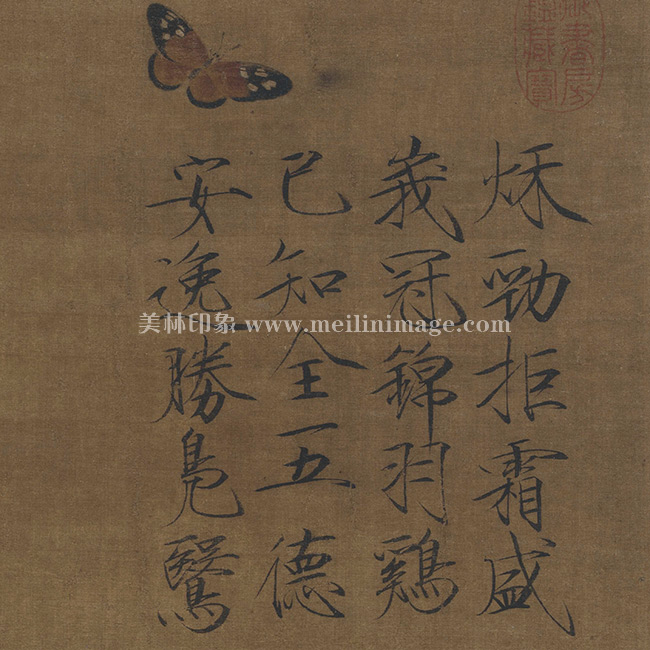 書房
藏寶
秌勁拒霜盛
峩冠錦羽鷄
已知全五德
安逸勝鳧鷖
美林印象 www.meilinimage.com